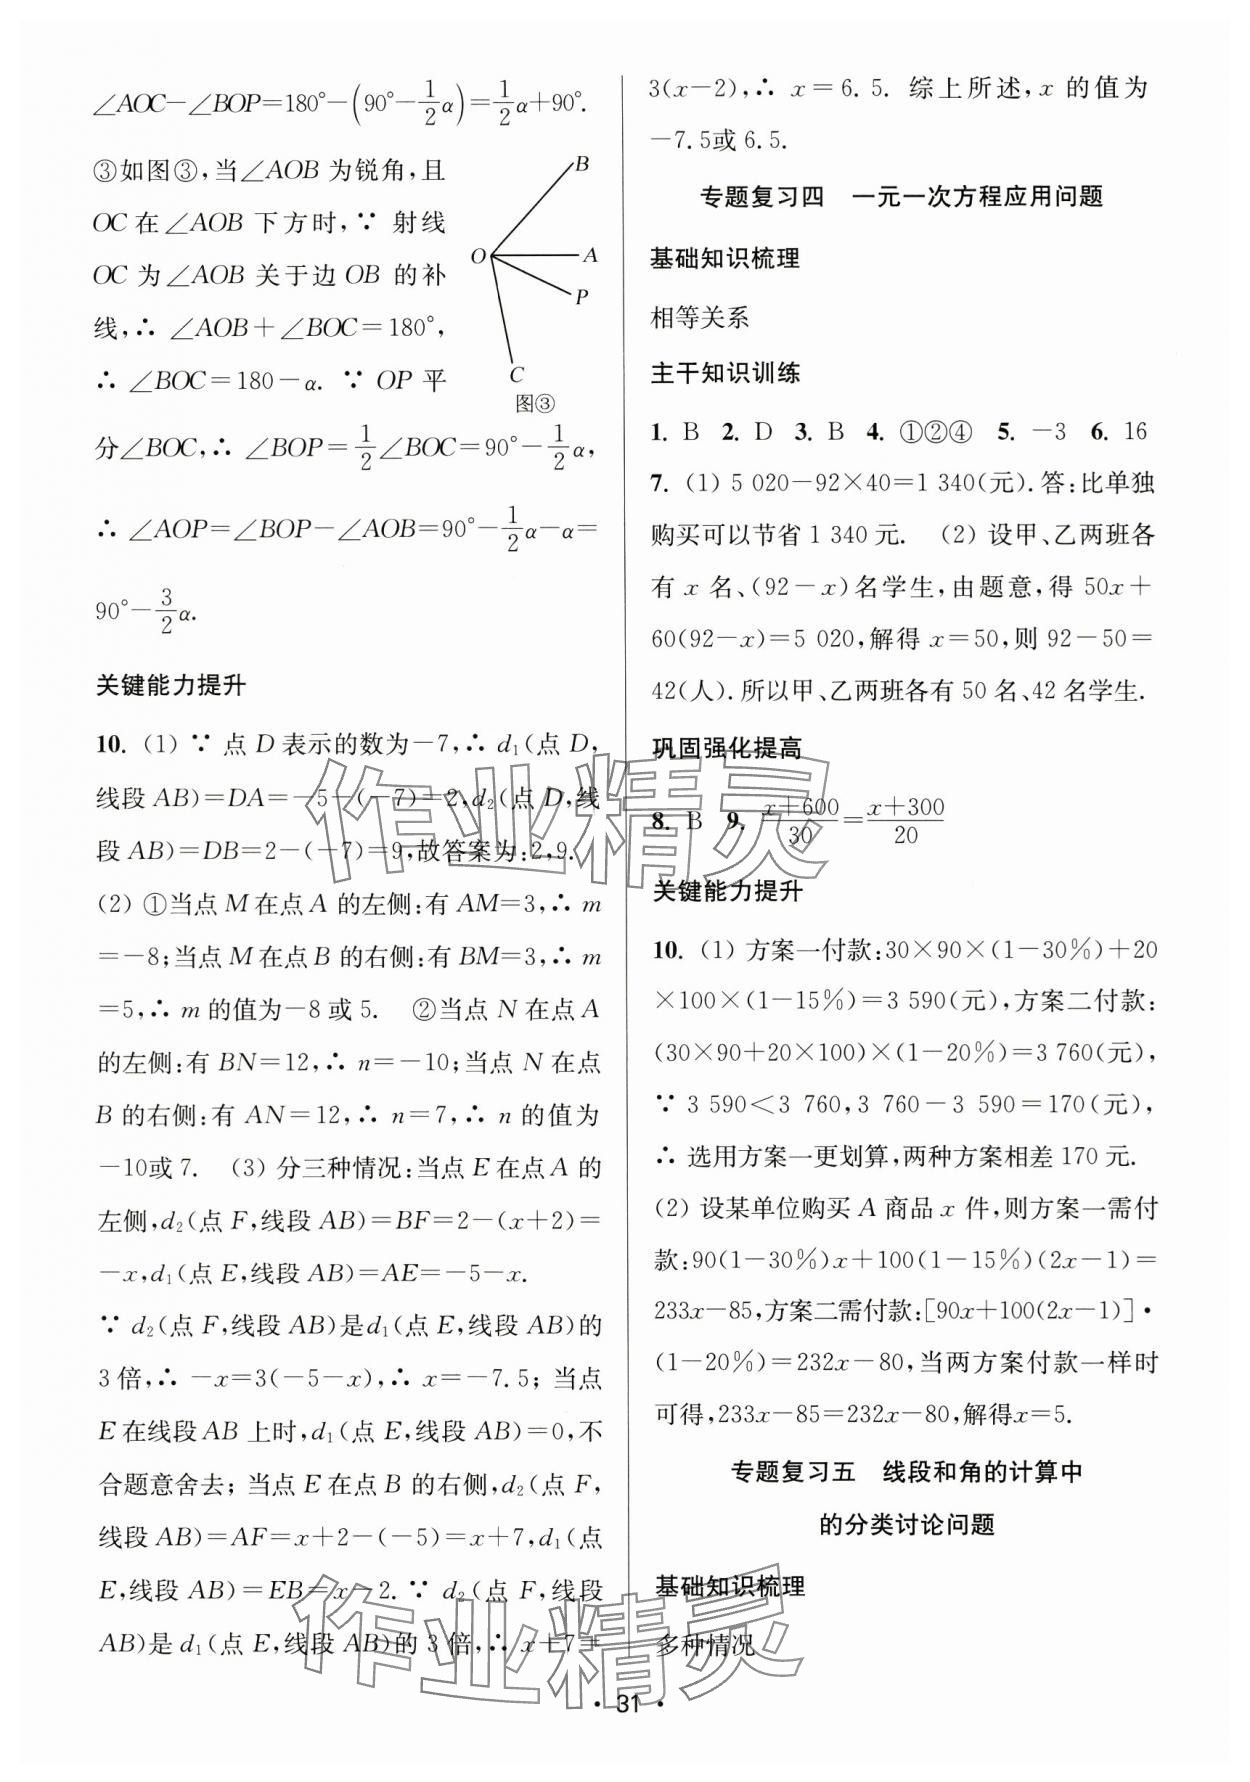 ∠AOC-∠BOP=180°-(90°-1/2α)=1/2α+90°.
③如图③,当∠AOB为锐角,且
OC在∠AOB下方时,∵射线
OC为∠AOB关于边OB的补
线,∴∠AOB+∠BOC=180°,
∴∠BOC=180-α. ∵OP平
B
O
A
P
C
图③
分∠BOC,∴∠BOP=1/2∠BOC=90°-1/2α,
∴∠AOP=∠BOP-∠AOB=90°-1/2α-α=
90°-3/2α.
关键能力提升
10. (1) ∵点D表示的数为-7,∴d₁(点D,
线段AB)=DA=-5-(-7)=2,d₂(点D,线
段AB)=DB=2-(-7)=9,故答案为:2,9.
(2) ①当点M在点A的左侧:有AM=3,∴m
=-8;当点M在点B的右侧:有BM=3,∴m
=5,∴m的值为-8或5. ②当点N在点A
的左侧:有BN=12,∴n=-10;当点N在点
B的右侧:有AN=12,∴n=7,∴n的值为
-10或7. (3) 分三种情况:当点E在点A的
左侧,d₂(点F,线段AB)=BF=2-(x+2)=
-x,d₁(点E,线段AB)=AE=-5-x.
∵d₂(点F,线段AB)是d₁(点E,线段AB)的
3倍,∴-x=3(-5-x),∴x=-7.5;当点
E在线段AB上时,d₁(点E,线段AB)=0,不
合题意舍去;当点E在点B的右侧,d₂(点F,
线段AB)=AF=x+2-(-5)=x+7,d₁(点
E,线段AB)=EB=x-2. ∵d₂(点F,线段
AB)是d₁(点E,线段AB)的3倍,∴x+7=
3(x-2),∴x=6.5. 综上所述,x的值为
-7.5或6.5.
专题复习四 一元一次方程应用问题
基础知识梳理
相等关系
主干知识训练
1. B 2. D 3. B 4. ①②④ 5. -3 6. 16
7. (1) 5 020-92×40=1 340(元).答:比单独
购买可以节省1 340元. (2) 设甲、乙两班各
有x名、(92-x)名学生,由题意,得50x+
60(92-x)=5 020,解得x=50,则92-50=
42(人).所以甲、乙两班各有50名、42名学生.
巩固强化提高
8. B 9. (x+600)/30=(x+300)/20
关键能力提升
10. (1) 方案一付款:30×90×(1-30%)+20
×100×(1-15%)=3 590(元),方案二付款:
(30×90+20×100)×(1-20%)=3 760(元),
∵3 590<3 760,3 760-3 590=170(元),
∴选用方案一更划算,两种方案相差170元.
(2) 设某单位购买A商品x件,则方案一需付
款:90(1-30%)x+100(1-15%)(2x-1)=
233x-85,方案二需付款:[90x+100(2x-1)]•
(1-20%)=232x-80,当两方案付款一样时
可得,233x-85=232x-80,解得x=5.
专题复习五 线段和角的计算中
的分类讨论问题
基础知识梳理
多种情况
• 31 •
作业精灵
作业精灵